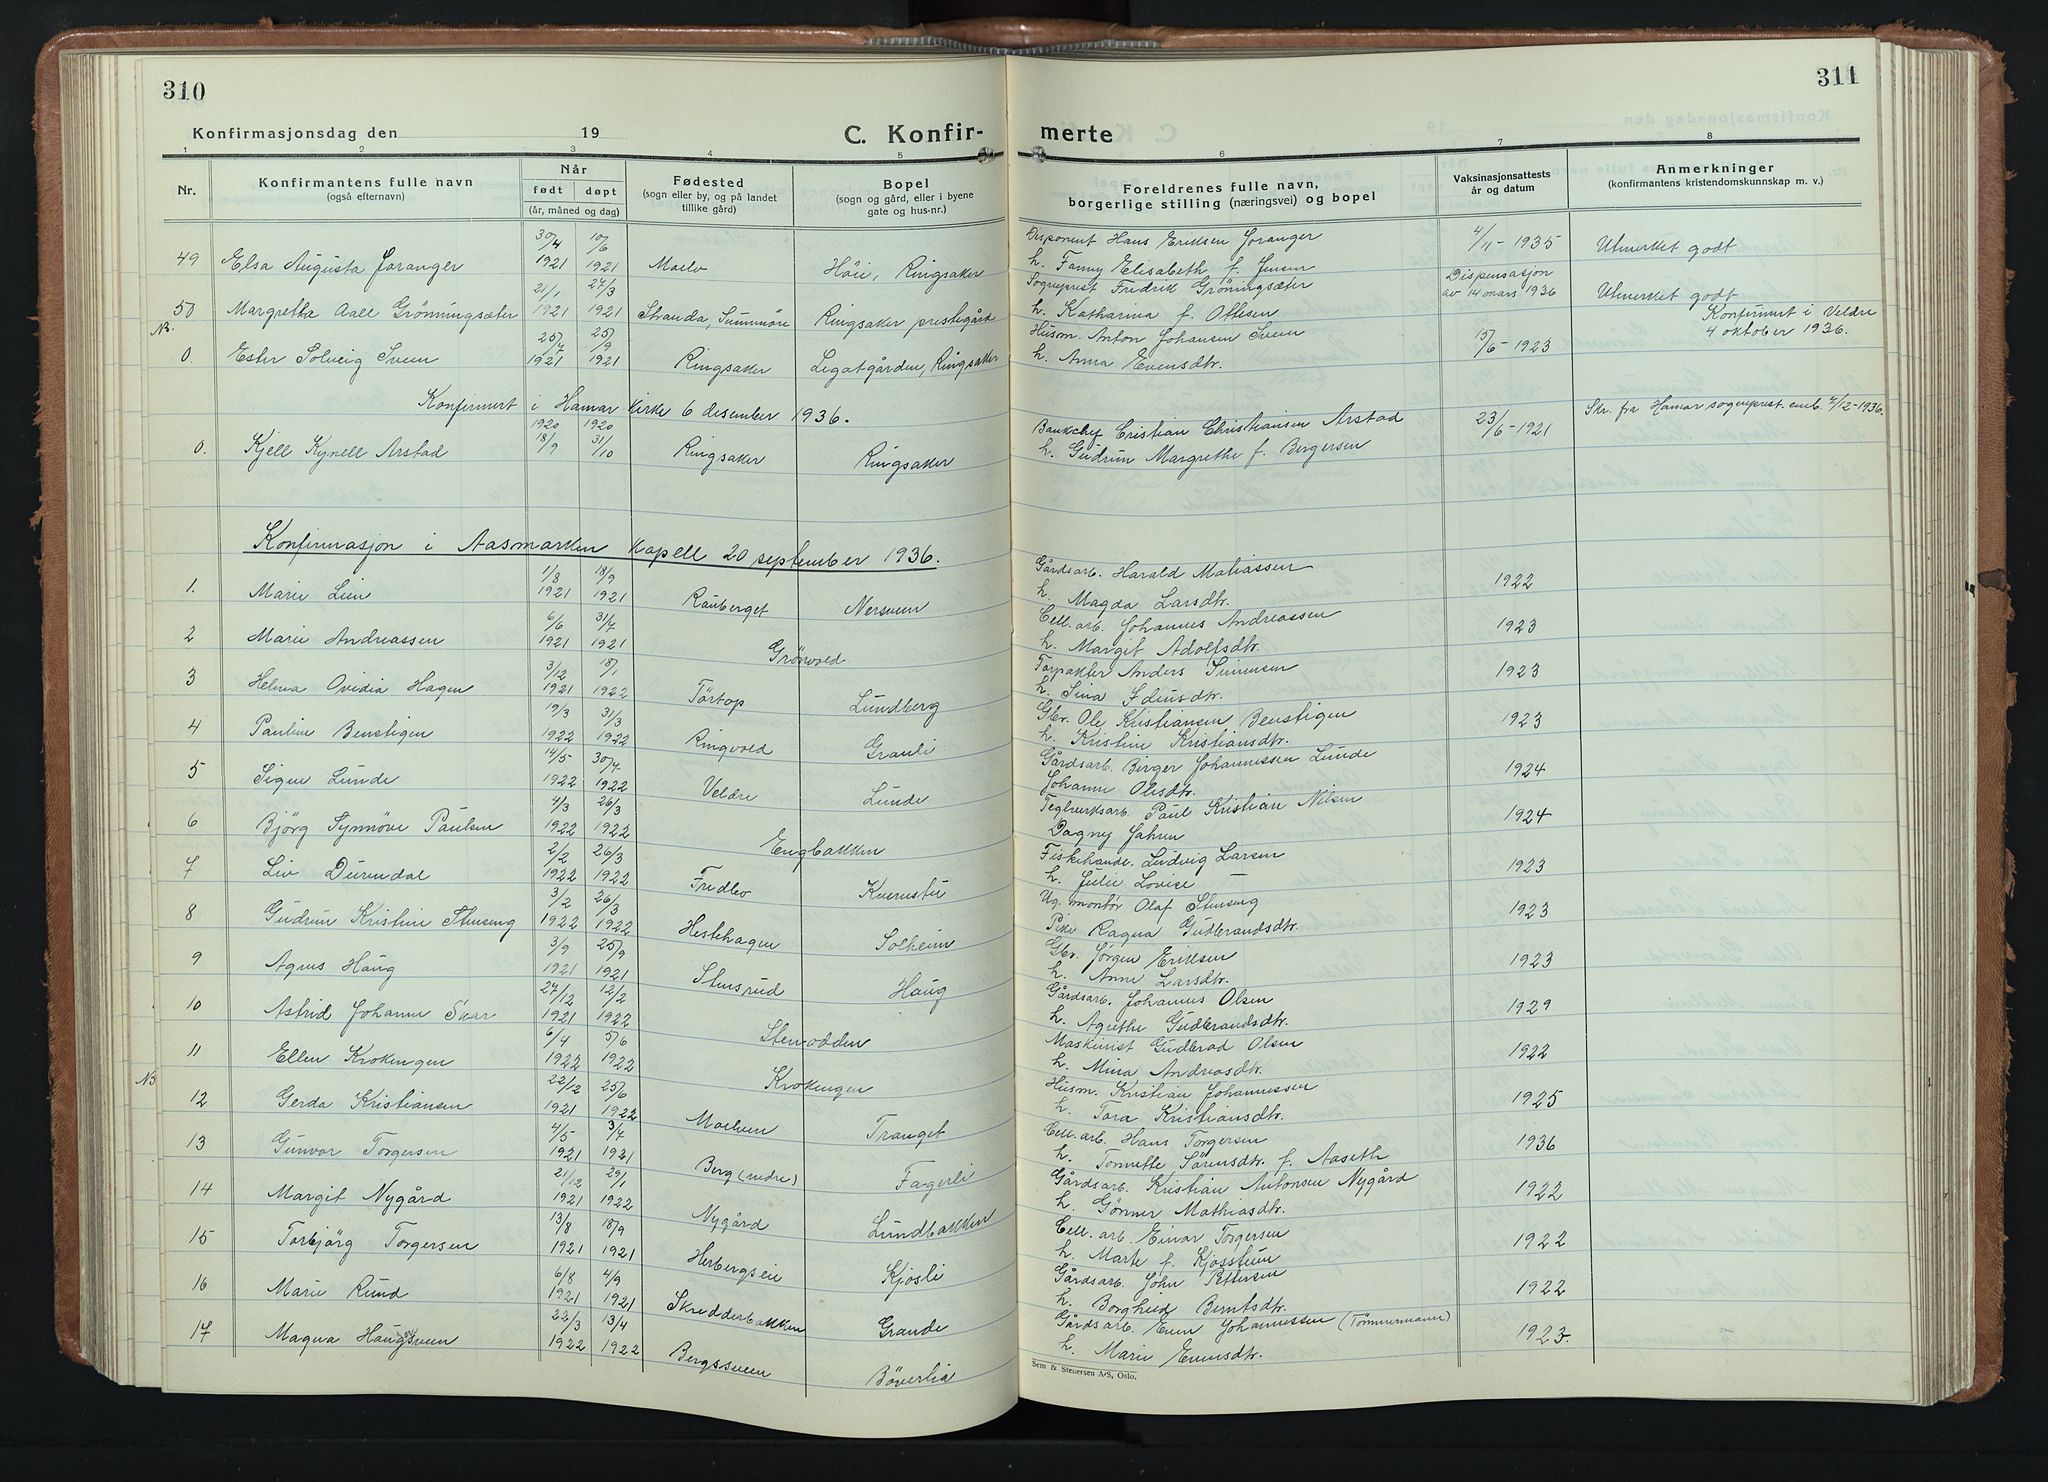 310
311
Konfirmasjonsdag den 19
C. Konfir-
merte
1 2 3 4 5 6 7 8
Nr.
Konfirmantens fulle navn
(også efternavn)
Når
født døpt
(år, måned og dag)
Fødested
(sogn eller by, og på landet
tillike gård)
Bopel
(sogn og gård, eller i byene
gate og hus-nr.)
Foreldrenes fulle navn,
borgerlige stilling (næringsvei) og bopel
Vaksinasjonsattests
år og datum
Anmerkninger
(konfirmantens kristendomskunnskap m. v.)
30/4 10/6 Disponent Hans Eriksen Joranger 4/11-1935 Utmerket godt
49 Elsa Augusta Joranger 1921 1921 Moelv Höie, Ringsaker h. Fanny Elisabeth f. Jensen
21/1 27/3 Sogneprest Fredrik Grönningsæter Dispensasjon
av 14 mars 1936 Utmerket godt
50 Margrethe Aall Grönningsæter 1921 1921 Stranda, Sunnmöre Ringsaker prestegård h. Katharina f. Ottesen
NB. 25/7 25/9 Husm. Anton Johansen Sveen 15/6-1923 Konfirmert i Veldre
4 oktober 1936.
0 Ester Solveig Sveen 1921 1921 Ringsaker Legatgården, Ringsaker h. Anna Evensdtr.
Konfirmert i Hamar kirke 6 desember 1936.
1920 1920 Bankchef Cristian Christiansen Arstad 23/6-1921 Skr. fra Hamar sogneprest. emb. 7/12-1936.
0. Kjell Kynell Arstad 18/9 31/10 Ringsaker Ringsaker h. Gudrun Margrethe f. Bergersen
Konfirmasjon i Aasmarken kapell 20 september 1936.
1/8 18/9 Gårdsarb. Harald Matiassen 1922
1. Marie Lien 1921 1921 Rauberget Nersveen h. Magda Larsdtr.
6/6 31/7 Cell. arb. Johannes Andreassen 1923
2 Marie Andreassen 1921 1921 Grönvold h. Margit Adolfsdtr.
3/12 18/1 Forpakter Anders Simensen 1923
3 Helma Ovidia Hagen 1921 1922 Törtop Lundberg h. Sina Edinsdtr.
19/3 31/3 Gbr. Ole Kristiansen Benstigen 1923
4 Pauline Benstigen 1922 1922 Ringvold Granli h. Kristine Kristiansdtr.
14/5 30/7 Gårdsarb. Birger Johannessen Lunde 1924
5 Signe Lunde 1922 1922 Veldre Lunde Johanne Olesdtr.
4/3 26/3 Teglverksarb. Paul Kristian Nilsen 1924
6 Björg Synnöve Paulsen 1922 1922 Engbakken Dagny Jahren
2/2 26/3 Fiskehandl. Ludvig Larsen 1923
7 Liv Durendal 1922 1922 Fredbo h. Julie Lovise —
3/2 26/3 Ug. montör Olaf Stenseng 1923
8 Gudrun Kristine Stenseng 1922 1922 Hestehagen Solheim Pike Ragna Gudbrandsdtr.
3/9 25/9 Gbr. Jörgen Eriksen 1923
9 Agnes Haug 1921 1921 Stensrud Haug h. Anne Larsdtr.
27/12 12/2 Gårdsarb. Johannes Olsen 1929
10 Astrid Johanne Skar 1921 1922 Stenodden h. Agnethe Gudbrandsdtr.
6/4 5/6 Maskinist Gudbrad Olsen 1922
11 Ellen Krokengen 1922 1922 Krokengen h. Mina Andreasdtr.
NB 22/12 25/6 Husm. Kristian Johannessen 1925
12 Gerda Kristiansen 1921 1922 Moelven Tranget h. Tora Kristiansdtr.
4/5 3/7 Cell. arb. Hans Torgersen 1936
13 Gunvor Torgersen 1921 1921 Berg (nedre) Fagerli h. Tonnette Sörensdtr. f. Aaseth
21/12 29/1 Gårdsarb. Kristian Antonsen Nygård 1922
14 Margit Nygård 1921 1922 Nygård Lundbakken h. Gönner Mathiasdtr.
13/8 18/9 Cell. arb. Einar Torgersen 1922
15 Torbjörg Torgersen 1921 1921 Herbergseie Kjosli h. Marte f. Kjosstuen
6/8 4/9 Gårdsarb. John Pettersen 1922
16 Marie Rund 1921 1921 Skredderbakken Grande h. Borghild Berntsdtr.
22/3 13/4 Gårdsarb. Even Johannessen (Tömmermann) 1923.
17 Magna Haugsveen 1922 1922 Bergssveen Böverlia h. Marie Evensdtr.
Sem & Stenersen A/S, Oslo.